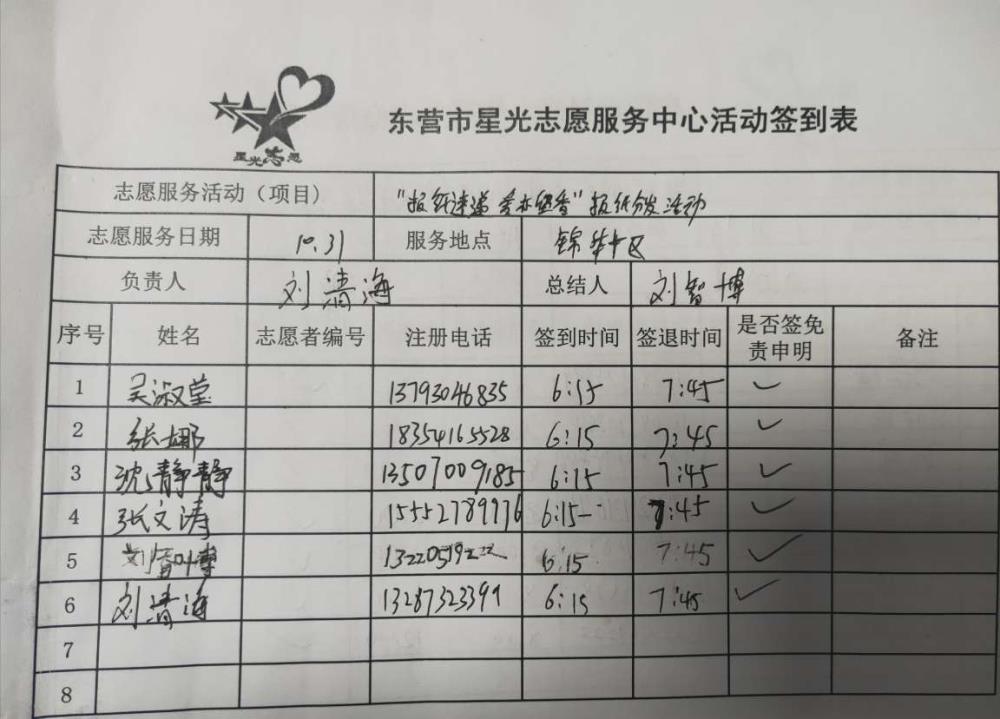 星光志愿
东营市星光志愿服务中心活动签到表
志愿服务活动（项目） "报纸速递 书亦留香"报纸分发活动
志愿服务日期 10.31 服务地点 锦华小区
负责人 刘清海 总结人 刘智博
序号 姓名 志愿者编号 注册电话 签到时间 签退时间 是否签免责申明 备注
1 吴淑莹 13793046835 6:15 7:45 ✓
2 张娜 18354165528 6:15 7:45 ✓
3 沈静静 13507009185 6:15 7:45 ✓
4 张文涛 15552789976 6:15 7:45 ✓
5 刘智博 6:15 7:45 ✓
6 刘清海 13287323399 6:15 7:45 ✓
7
8